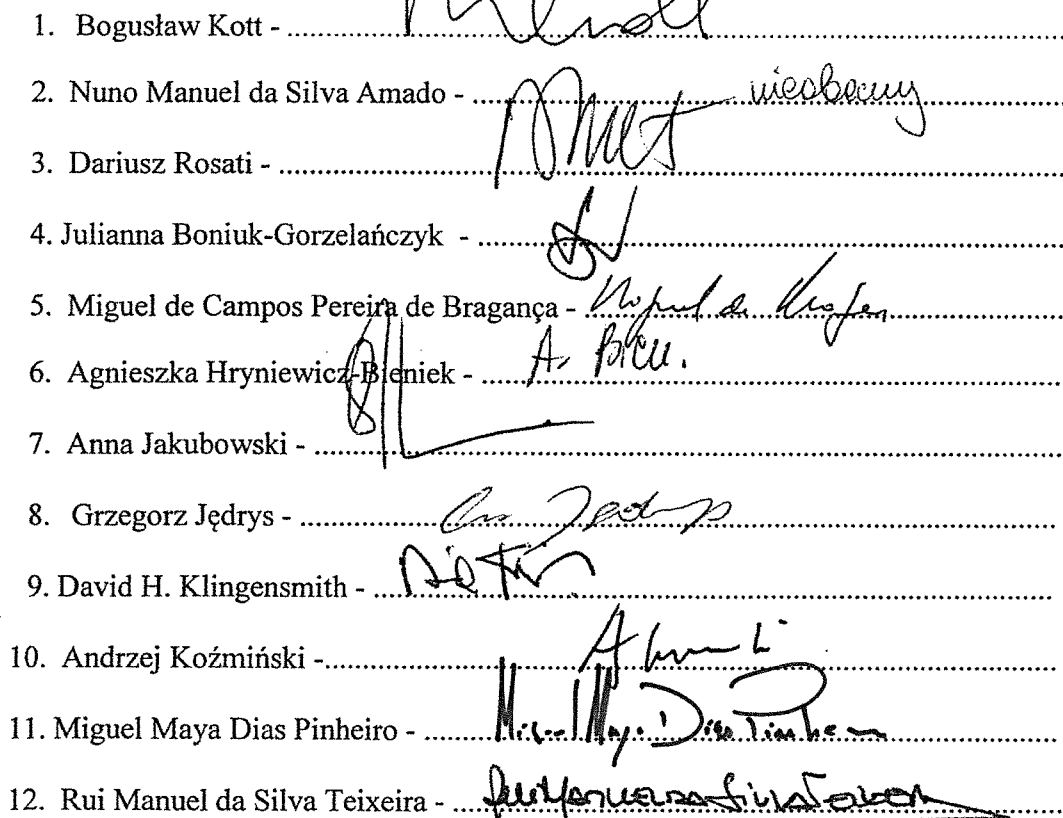 1. Bogusław Kott - ........................................
2. Nuno Manuel da Silva Amado - .................... nieobecny
3. Dariusz Rosati - ........................................
4. Julianna Boniuk-Gorzelańczyk - ........................................
5. Miguel de Campos Pereira de Bragança - ........................................
6. Agnieszka Hryniewicz-Bieniek - ........................................
7. Anna Jakubowski - ........................................
8. Grzegorz Jędrys - ........................................
9. David H. Klingensmith - ........................................
10. Andrzej Koźmiński -........................................
11. Miguel Maya Dias Pinheiro - ........ Miguel Maya Dias Pinheiro
12. Rui Manuel da Silva Teixeira - .... Rui Manuel da Silva Teixeira